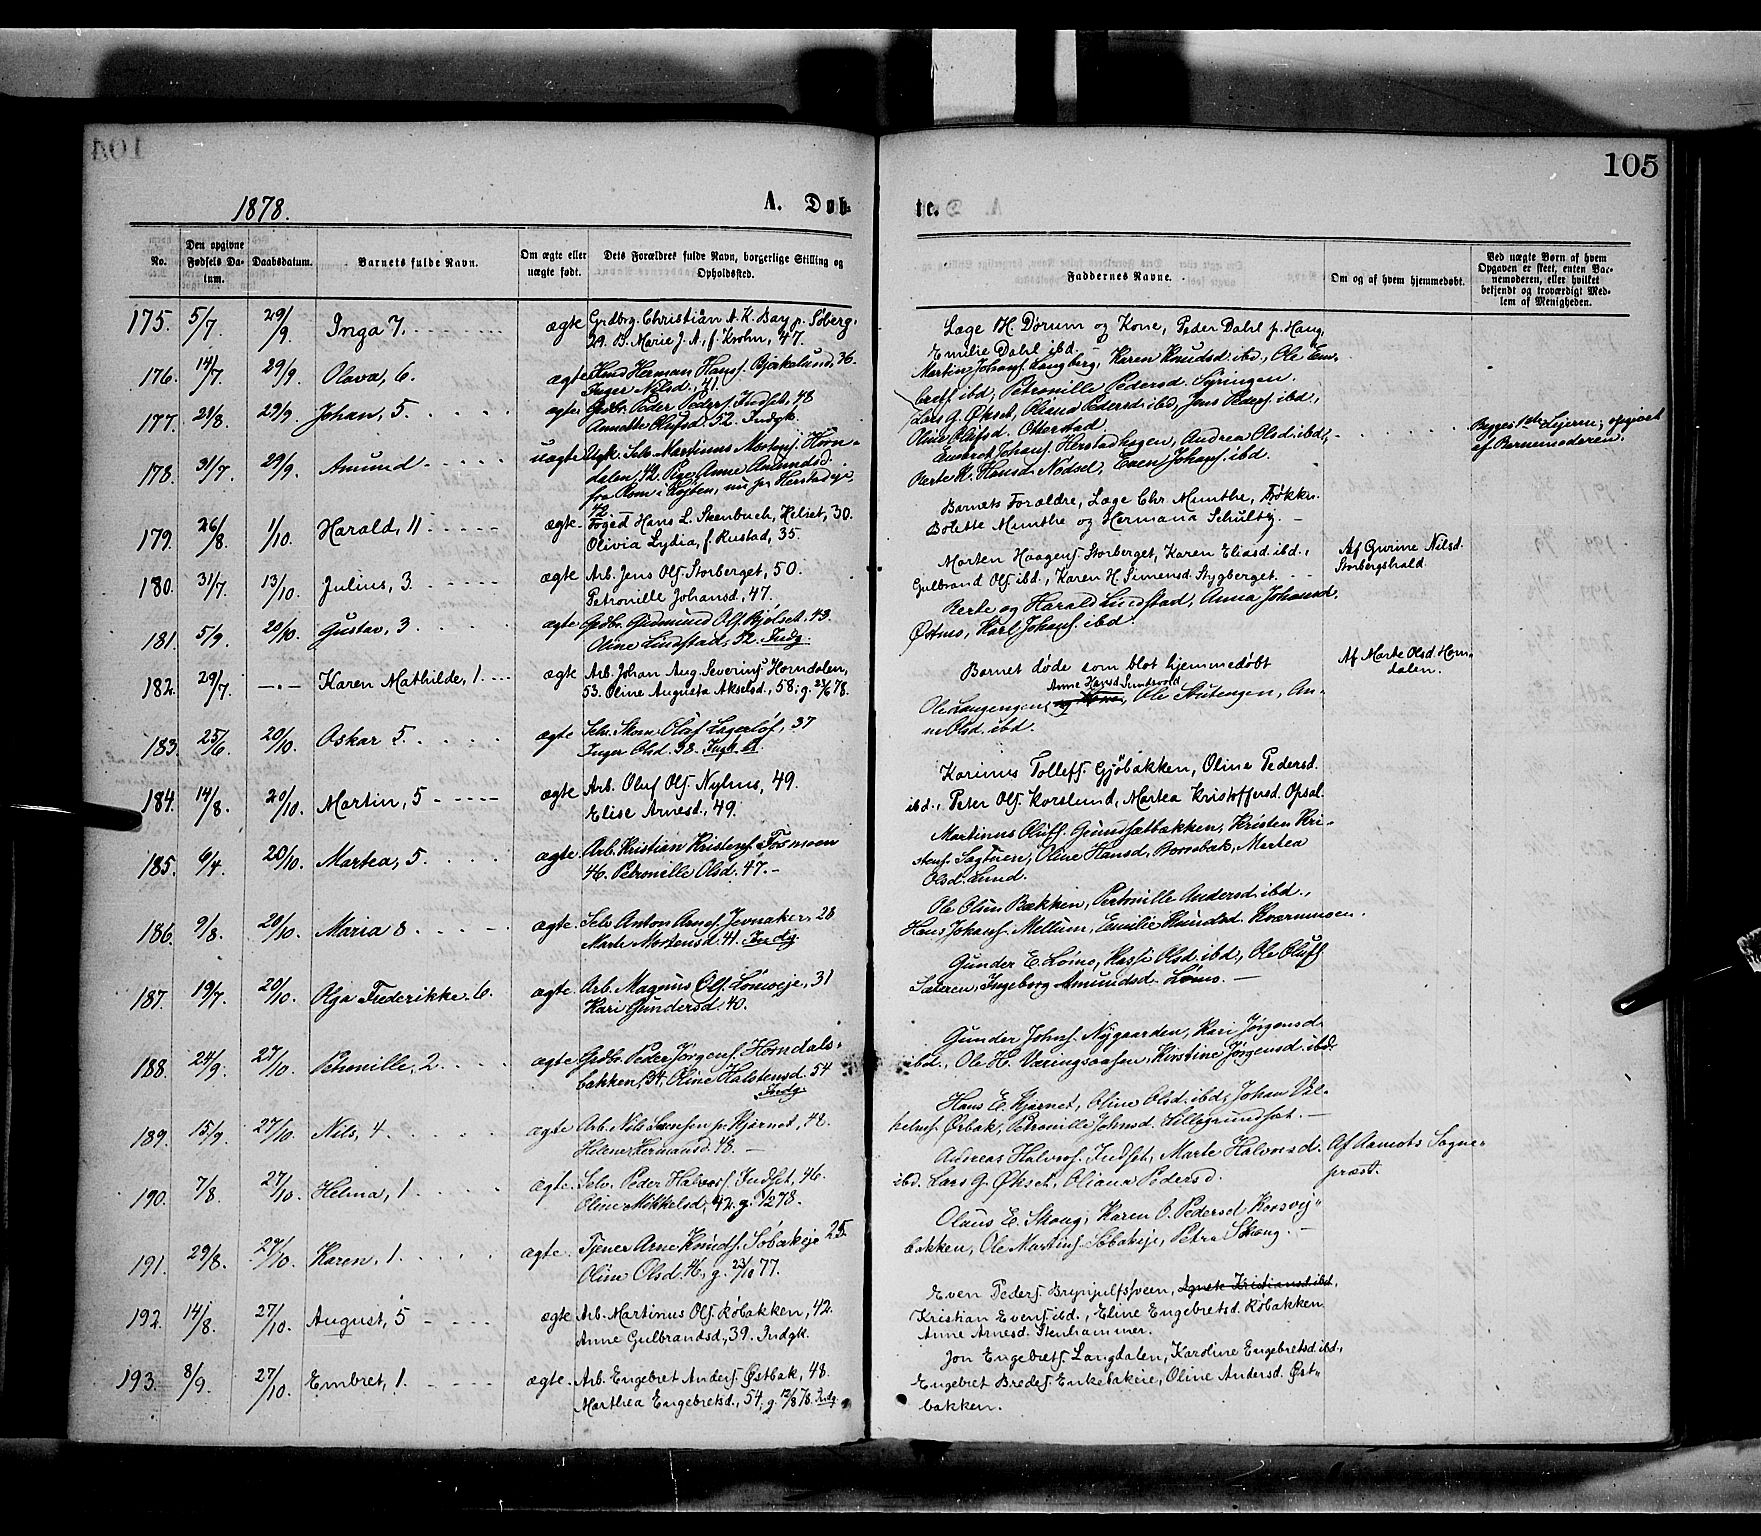 105
1878.
A. Døb-
te.
No.
Den opgivne Fødsels Da-
tum.
Daabsdatum.
Barnets fulde Navn.
Om ægte eller
uægte født.
Dets Forældres fulde Navn, borgerlige Stilling og
Opholdssted.
Faddernes Navne.
Om og af hvem hjemmedøbt.
Ved uægte Børn af hvem
Opgaven er skeet, enten Bar-
nemoderen, eller hvilket
bekjendt og troværdigt Med-
lem af Menigheden.
175. 5/7 29/9 Inga 7. ægte Grdbrg. Christian A. K. Bay p. Søberg,
29. B. Marie J. A, f. Krohn, 47.
Læge H. Dørum og Kone, Peder Dahl p. Haug,
Emilie Dahl ibd.
176. 14/7 29/9 Olava, 6. ægte Herman Hansf. Bjørkelund, 36.
Inger Nilsd., 41.
Martin Johansf. Langberg, Karen Knudsd. ibd., Ole Em-
bretf. ibd., Petronille Pedersd. Syringen.
177. 21/8 29/9 Johan, 5. ægte Grdbr. Peder Pedersf. Indset, 48
Annette Olufsd. 52. Indgk.
Lars G. Økset, Oliana Pedersd. ibd., Jens Pedersf. ibd.,
Oline Olufsd. Otterstad
178. 31/7 29/9 Amund uægte Ugk. Selv. Martinus Mortensf. Horn-
dalen, 42. Pige Anne Amundsd.
fra Rom i Løjten, nu p. Herstadeje,
42.
Embret Johansf. Herstadhagen, Andrea Olsd. ibd.,
Berte K. Hansd. Nødset, Even Johansf. ibd.
Begges 1ste Lejerm; opgivet
af Barnemoderen.
179. 26/8 1/10. Harald, 11 ægte Foged Hans L. Stenbuch, Heliet, 30.
Olivia Lydia, f. Rustad, 35.
Barnets Forældre, Læge Chr. Munthe, Frøkkn.
Bolette Munthe og Hermana Schultz.
180. 31/7 13/10. Julius, 3 ægte Arb. Jens Olsf. Storberget, 50.
Petronille Johansd., 47.
Morten Haagensf. Storberget, Karen Eliasd. ibd.,
Gulbrand Olsf. ibd., Karen H. Simensd. Stygberget.
Af Gurine Nilsd.
Storbergshald.
181. 5/9 20/10 Gustav, 3 ægte Grdbr. Gudmund Olsf. Bjølset, 43.
Oline Lindstad, 52. Indg.
Berte og Harald Lindstad, Anna Johansd.
Østmo, Karl Johansf. ibd.
182. 29/7 Karen Mathilde, 1. ægte Arb. Johan Aug. Severinsf. Horndalen,
53. Oline Augusta Akselsd., 58; g. 23/6 78.
Barnet døde som blot hjemmedøbt
Af Marte Olsd. Horn-
dalen.
183. 25/6 20/10. Oskar 5. ægte Selv. Skom. Oluf Lagerløf, 37
Inger Olsd. 38.
Anne Hansd. Sundvold
Ole Langengen, og Kone, Ole Stutengen, An-
ne Olsd. ibd.
184. 14/8. 20/10. Martin, 5 ægte Arb. Oluf Olsf. Nylund, 49.
Elise Arnesd., 49.
Karinus Tollefsf. Gjøbakken, Oline Pedersd.
ibd., Peter Olsf. Korslund, Martea Kristoffersd. Opsal.
185. 6/4. 20/10. Martea, 5 ægte Arb. Kristian Kristensf. Fosmoen
46. Petronille Olsd. 47.
Martinus Olufsf. Grundsætbakken, Kristen Kri-
stensf. Sagtuen, Oline Hansd. Bornsbak, Martea
Olsd. Lund.
186. 9/8. 20/10. Maria 8 ægte Selv. Anton Arnesf. Jevnaker, 28
Marte Mortensd. 41. Indg.
Ole Olsen Bækken, Pertonille Andersd. ibd.,
Hans Johansf. Mellum, Emilie Knudsd. Kværnmoen.
187. 19/7. 20/10. Olga Frederikke. 6. ægte Arb. Magnus Olsf. Lømoeje, 31
Kari Gundersd. 40.
Gunder E. Lømo, Kasse Olsd. ibd., Ole Olufsf.
Sæteren, Ingeborg Amundsd. Lømo.
188. 24/9. 27/10. Petronille, 2. ægte Grdbr. Peder Jørgensf. Horndals-
bakken, 34, Oline Halstensd. 54
Indg.
Gunder Johnsf. Nygaarden, Kari Jørgensd.
ibd., Ole H. Væringsaasen, Kirstine Jørgensd. ibd.
189. 15/9. 27/10. Nils, 4. ægte Arb. Nils Larsen p. Kjærnet, 48.
Helene Hermansd. 48.
Hans E. Kjærnet, Oline Olsd. ibd., Johan Vil-
helmsf. Ørbak, Petronille Johnsd. Lillegrundset.
190. 7/8. 27/10. Helma, 1. ægte Selv. Peder Halvorsf. Indset, 46.
Oline Mikkelsd., 42. g. 1/2 78.
Andreas Halvorsf. Indset, Marte Halvorsd.
ibd. Lars G. Økset, Oliana Pedersd.
Af Aamots Sogne-
præst.
191. 29/8. 27/10. Karen, 1. ægte. Tjener Arne Knudsf. Søbakeje 25.
Oline Olsd. 46, g. 23/10 77.
Olaus E. Skoug, Karen O. Pedersd. Korsvej-
bakken, Ole Martinsf. Søbakeje, Petra Skoug.
192. 14/8. 27/10. August, 5 ægte Arb. Martinus Olsf. Røbakken, 42.
Anne Gulbrandsd., 39. Indgk.
Even Pedersf. Brynjulfsveen, Agnete Kristiansd. ibd,
Kristian Evensf. ibd., Eline Engebretsd. Røbakken
Anne Arnesd. Stenhammer.
193. 8/9. 27/10. Embret, 1. ægte. Arb. Engebret Andersf. Østbak, 48.
Marthea Engebretsd., 54, g. 12/8 78. Indg
Jon Engebretsf. Langdalen, Karoline Engebretsd. ibd.,
Engebret Bredesf. Enkebakeie, Oline Andersd. Øst-
bakken.